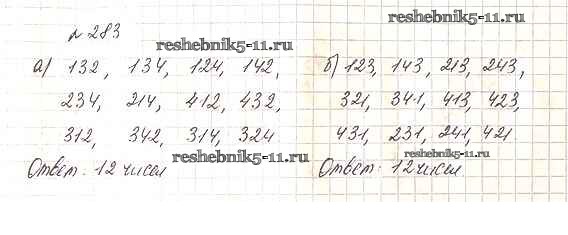 № 283
reshebnik5-11.ru
reshebnik5-11.ru
а) 132, 134, 124, 142,
234, 214, 412, 432,
312, 342, 314, 324
Ответ: 12 чисел
reshebnik5-11.ru
б) 123, 143, 213, 243,
321, 341, 413, 423,
431, 231, 241, 421
reshebnik5-11.ru
Ответ: 12 чисел.